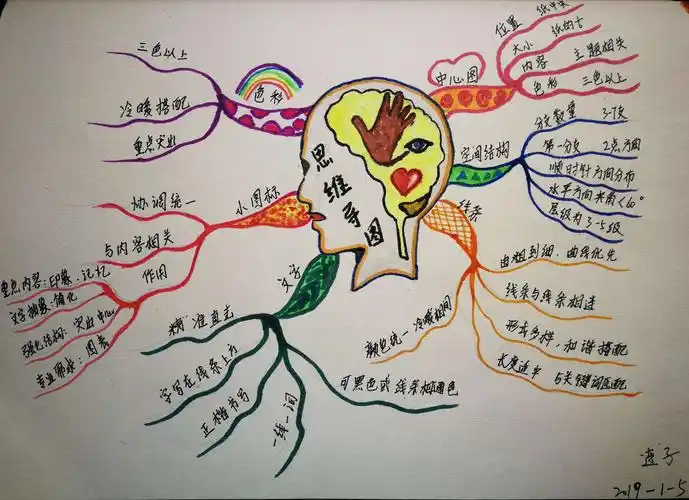 思维导图
中心图
位置 纸中央
大小 纸的
内容 主题相关
色彩 三色以上
空间结构
分支数量 3-7支
第一分支 2点方向
顺时针方向分布
水平方向夹角<60°
层级为3-5级
线条
由粗到细,曲线优先
线条与线条相连
形式多样,和谐搭配
长度适中 与关键词匹配
颜色统一 冷暖相间
文字
精准直击
字写在线条上方
正楷书写
一线一词
可黑色或线条相同色
小图标
协调统一
与内容相关
作用
重点内容:印象、记忆
文字抽象:简化
强化结构:突出中心
专业形象:图表
色彩
三色以上
冷暖搭配
重点突出
莲子
2019-1-5